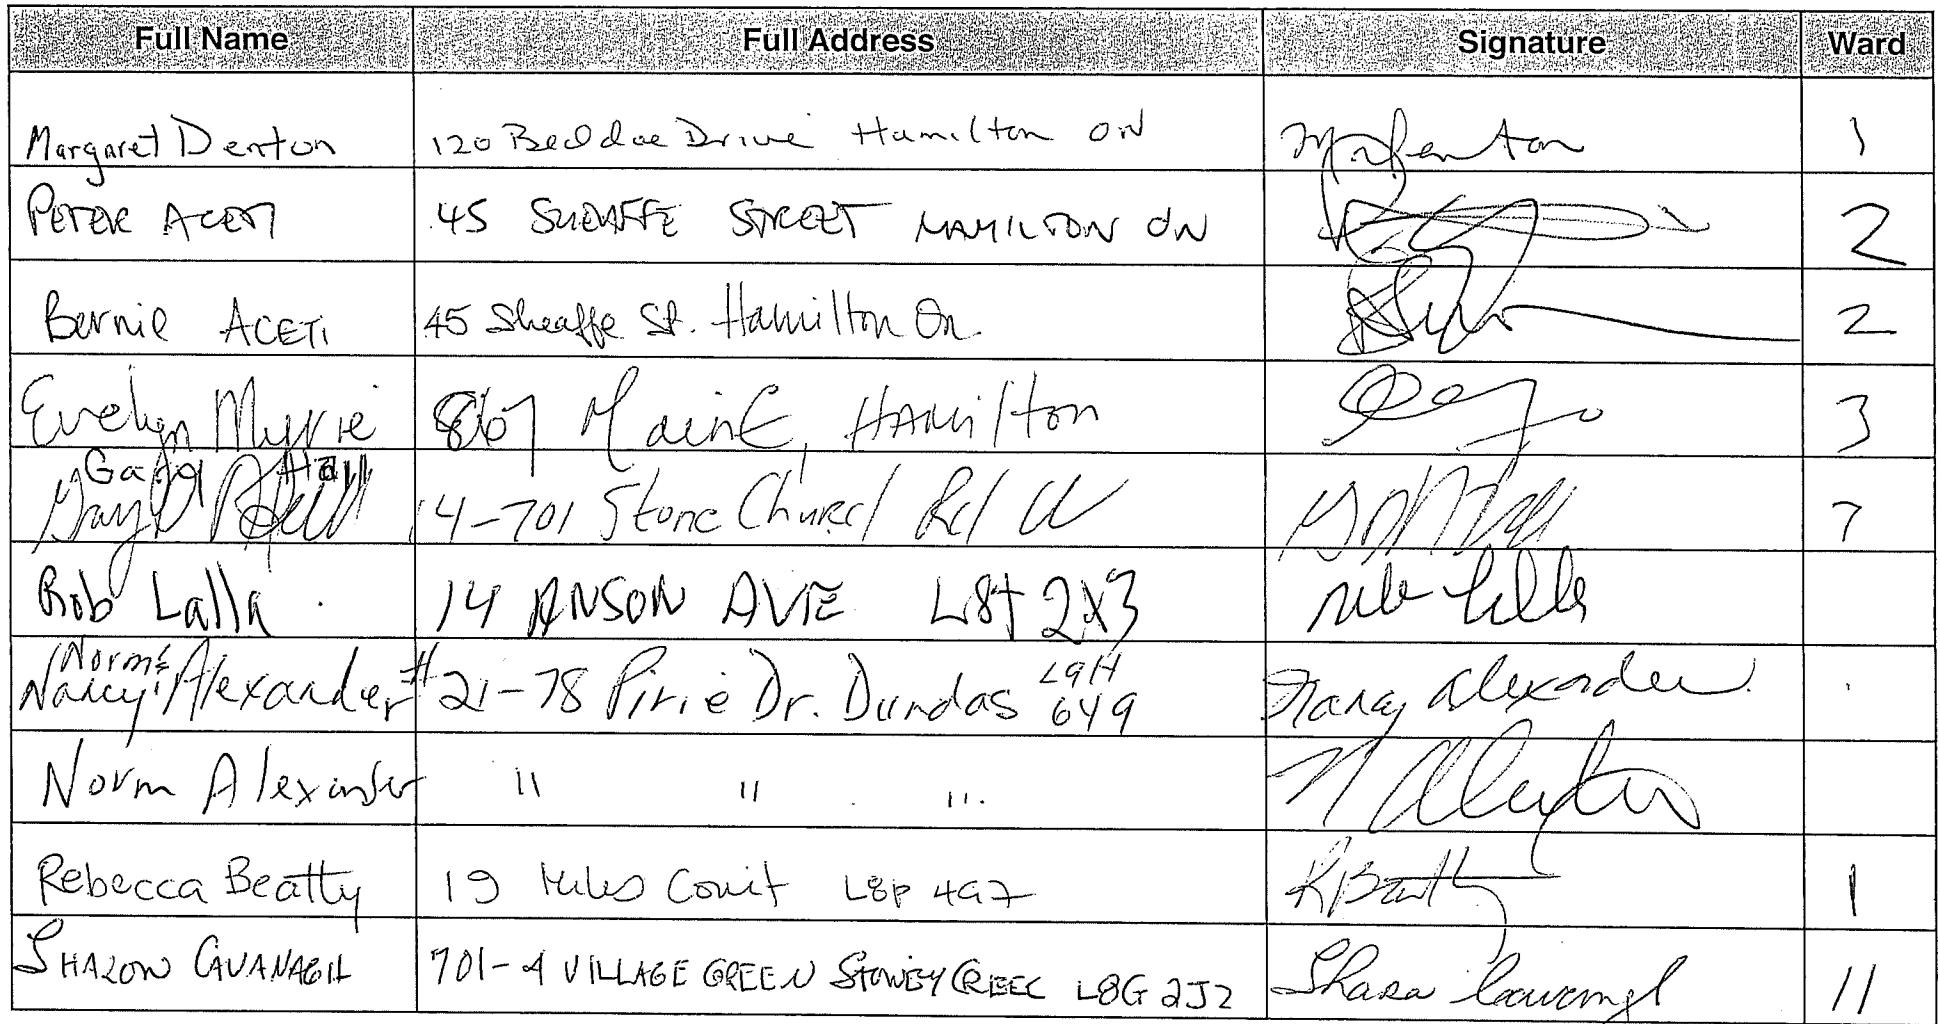 Full Name Full Address Signature Ward
Margaret Denton 120 Beddoe Drive Hamilton ON 1
PETER ACETI 45 SHEAFFE STREET HAMILTON ON 2
Bernie ACETI 45 Sheaffe St. Hamilton On. 2
Evelyn Myrie 867 Main E, HAMilton 3
Gayl Hall
14-701 Stone Church Rd W 7
Rob Lalla 14 ANSON AVE L8T 2X3
Norm &
Nancy Alexander #21-78 Pirie Dr. Dundas L9H 6Y9 Nancy Alexander
Norm Alexander " " "
Rebecca Beatty 19 Court L8P 4G7 RBeatty 1
SHARON CAVANAGH 701-4 VILLAGE GREEN STONEY CREEK L8G 2J2 11